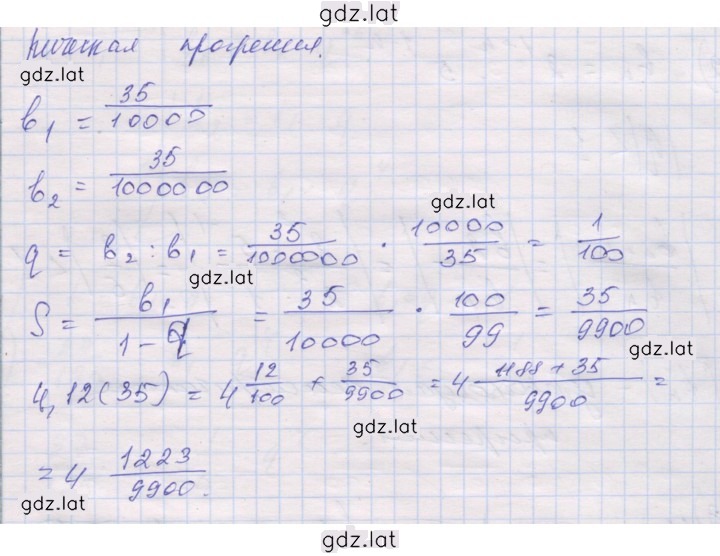 gdz.lat
прогрессия.
gdz.lat
b₁ = 35/10000
b₂ = 35/1000000
gdz.lat
q = b₂ : b₁ = 35/1000000 · 10000/35 = 1/100
gdz.lat
S = b₁/(1 - q) = 35/10000 · 100/99 = 35/9900
gdz.lat
4,12(35) = 4 12/100 + 35/9900 = 4 (1188 + 35)/9900 =
gdz.lat
gdz.lat
= 4 1223/9900.
gdz.lat
gdz.lat